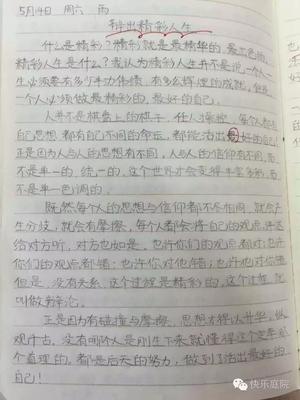 5月14日 周六 雨
辩出精彩人生
什么是精彩?精彩就是最精华的,最出色的。
精彩人生是什么?我认为精彩人生并不是说,一个人一
生必须要有多少丰功伟绩,有多么辉煌的成就,但是
一个人必须做最精彩的,最好的自己。
人并不是棋盘上的棋子,任人操控,每个人都有自
己思想,都有自己不同的命运,都能活出最好的自己!
正是因为人与人的思想有不同,人与人的信仰有不同,而
不是单一的,统一的,这个世界才会变得丰富多彩,而
不是单一色调的。
既然每个人的思想与信仰都不尽相同,就会产
生分歧,就会有摩擦,每个人都会将自己的观点,传送
给对方听,对方也如是,也许你们的观点都对;也许
你们的观点都错;也许你对他错;也许他对你错。
但是,没有关系,这个过程是精彩的,这个过程,就
叫做辩论。
正是因为有碰撞与摩擦,思想才得以升华,纵
观汗古,没有哪个人是刚生下来就懂得这个定率那
个真理的。都是后天的努力,做到了活出最好的
自己!
快乐庭院